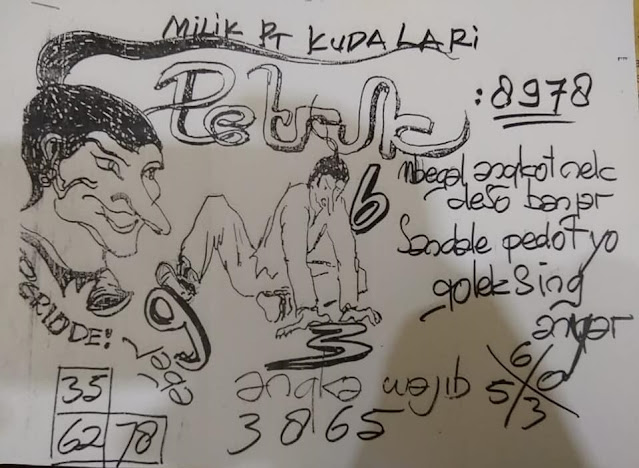 MILIK PT KUDA LARI
Petruk
: 8978
6
mbegal angkot nek
deso banjar
Sandale pedot yo
golek sing
anyar
9
3
PERIODE:
35
62 78
angka wajib
3 8 6 5
6
5 0
3